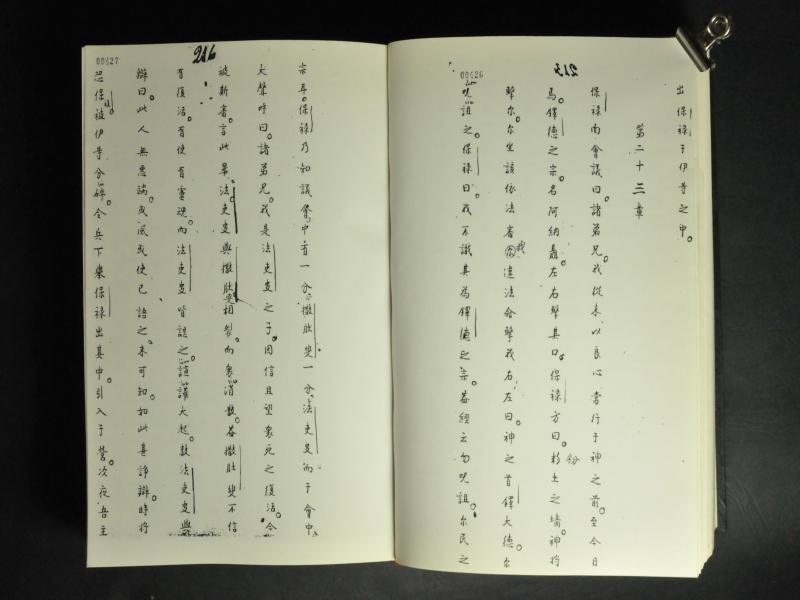 213
00426
出保祿于伊等之中。
第二十三章
保祿向會議曰。諸弟兄。我從來以良心當行于神之前。至今日
馬。鐸德之宗。名阿納聶。左右擊其口。保祿方曰。粉土之墻。神將
擊尔。尔坐該依法審我。而違法命擊我。右左曰。神之首鐸大德尔
呪詛之。保祿曰。我不識其為鐸德之宗。葢經云勿呪詛。尔民之
216
00427
宗耳。保祿乃知議會中有一分。撒肚叟一分。法吏叟。而于會中
大聲呼曰。諸弟兄。我是法吏叟之子。因信且望衆死之復活。今
被斯審。言此畢。法吏叟與撒肚叟相裂。而衆消散。葢撒肚叟不信
有復活。有使有靈魂。而法吏叟皆認之。諠譁大起。數法吏叟興
辯曰。此人無惡端。或風或使已語之。未可知。如此甚諍辯。時將
恐保祿被伊等分碎。令兵下舉保祿出其中。引入于營。次夜吾主